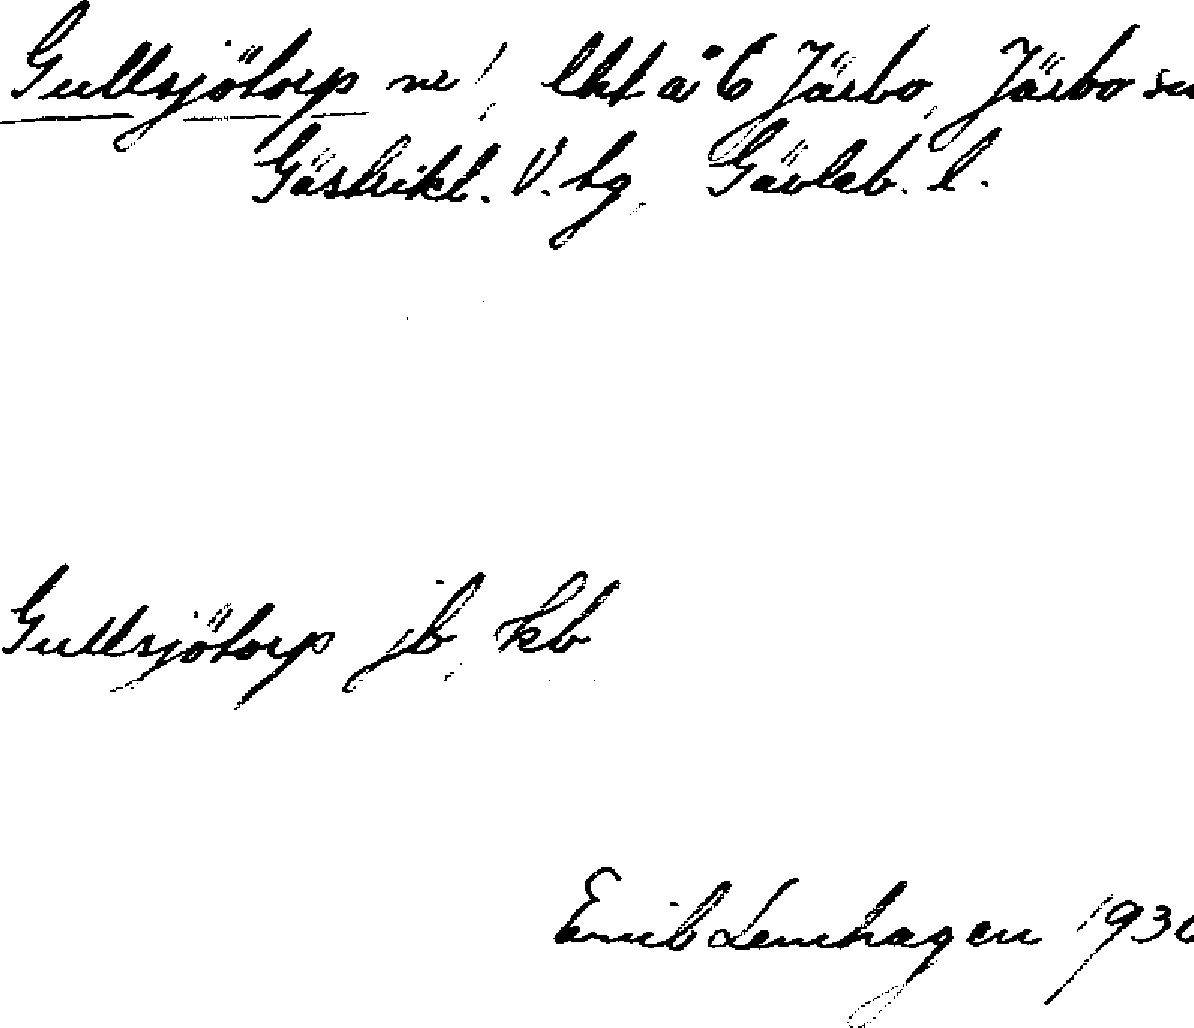 Gullsjötorp nr 1, lht å 6 Järbo, Järbo sn
Gästrikl. V. hg, Gävleb. l.
Gullsjötorp jb, kb
Lenhagen